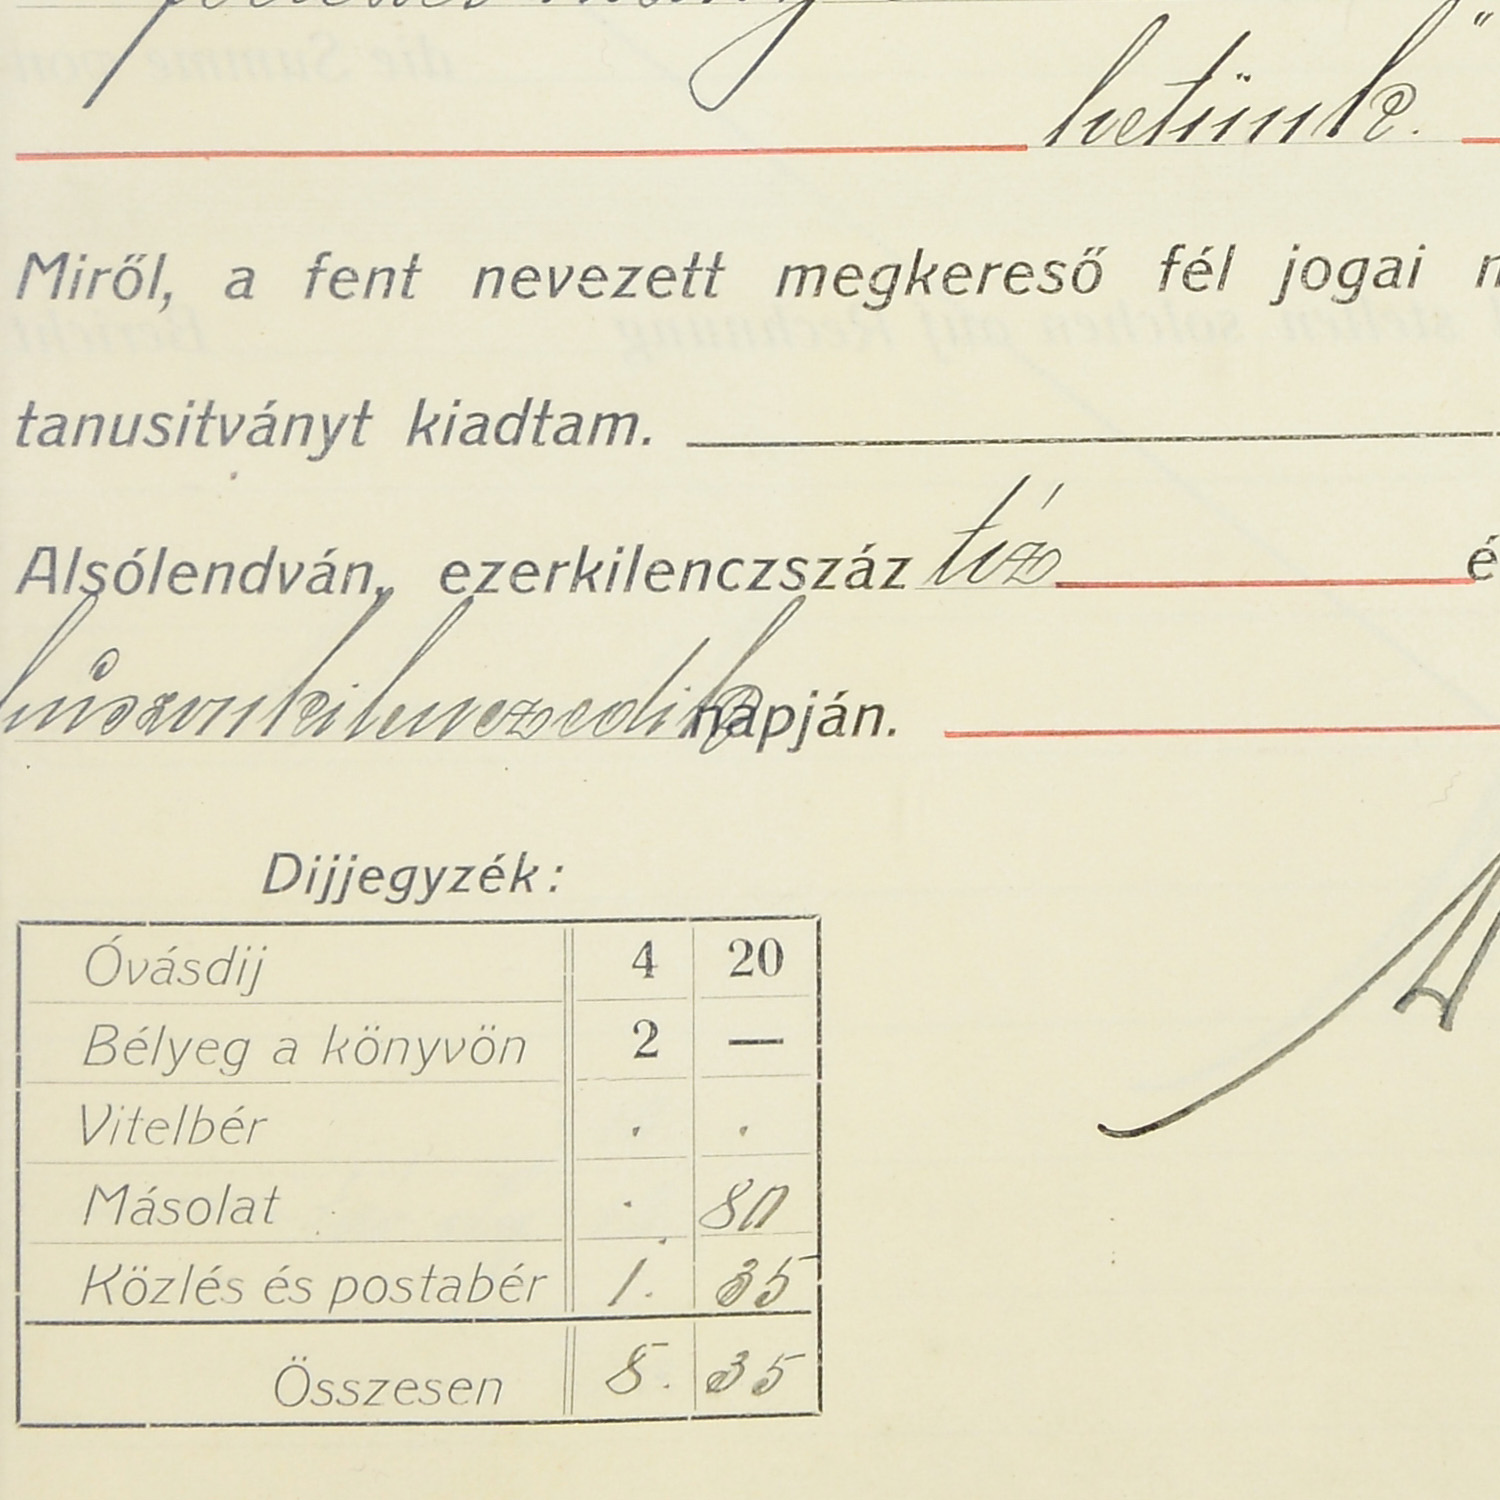 hetünk."
Miről, a fent nevezett megkereső fél jogai
tanusitványt kiadtam.
Alsólendván, ezerkilenczszáz tíz
húszonkilenczedik napján.
Dijjegyzék:
Óvásdij 4 20
Bélyeg a könyvön 2 —
Vitelbér . .
Másolat . 80
Közlés és postabér 1. 35
Összesen 8. 35